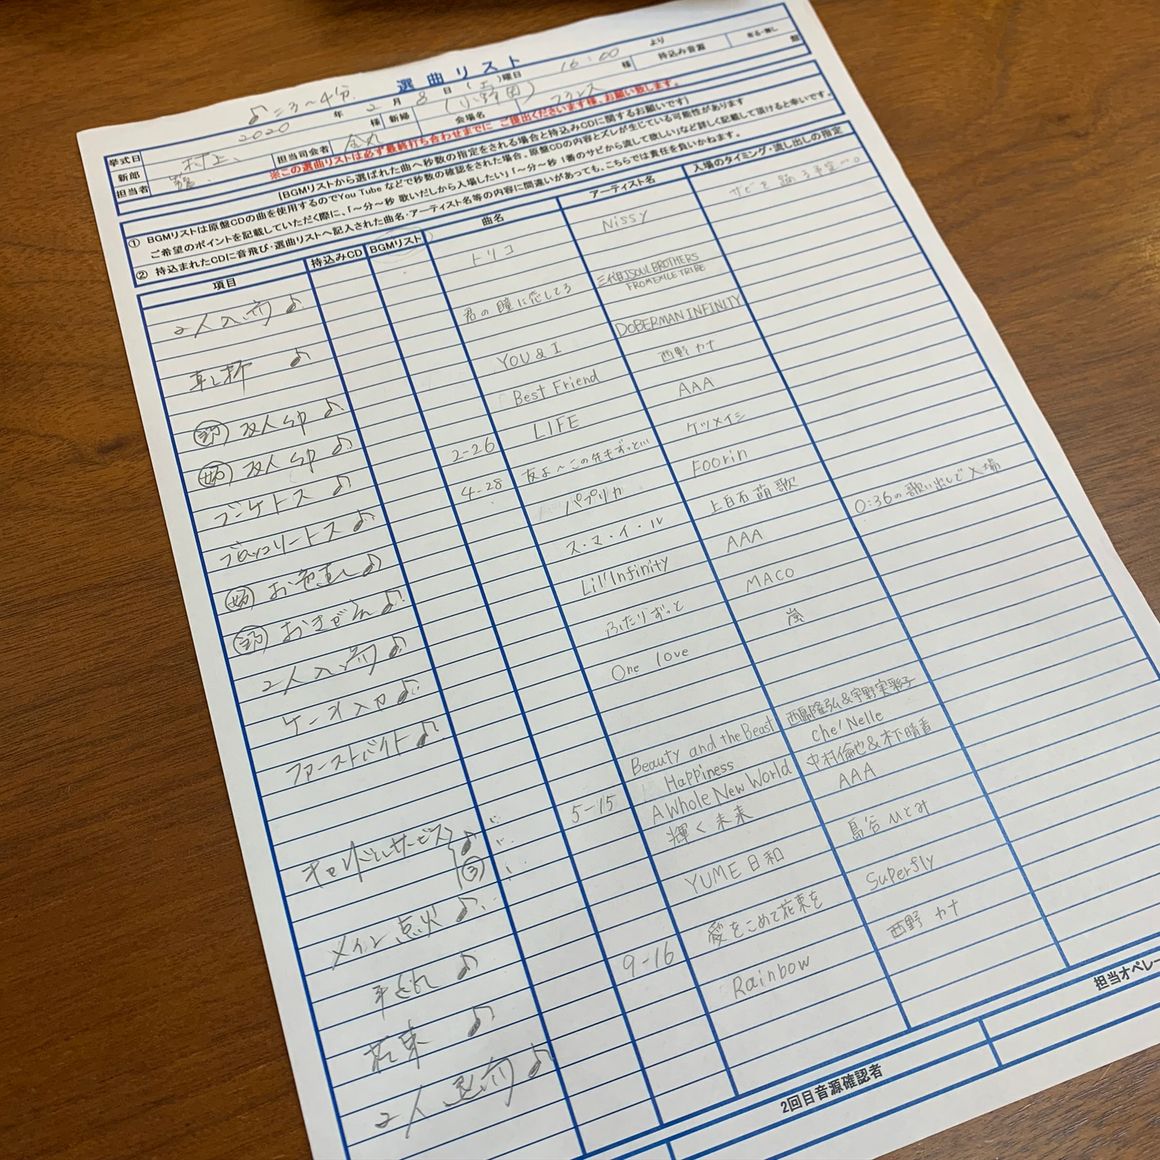 選曲リスト
♪=3～4分
挙式日 2020 年 2 月 8 日 (土)曜日 16:00 より 持込み音源 有る・無し
新郎 村上 様 新婦 (小野田) 様 類
担当者 担当司会者 会場名 フランス
※この選曲リストは必ず最終打ち合わせまでに ご提出くださいます様、お願い致します。
[BGMリストから選ばれた曲へ秒数の指定をされる場合と持込みCDに関するお願いです]
① BGMリストは原盤CDの曲を使用するのでYou Tube などで秒数の確認をされた場合、原盤CDの内容とズレが生じている可能性があります
ご希望のポイントを記載していただく際に、「～分～秒 歌いだしから入場したい」「～分～秒 1番のサビから流して欲しい」など詳しく記載して頂けると幸いです。
② 持込まれたCDに音飛び・選曲リストへ記入された曲名・アーティスト名等の内容に間違いがあっても、こちらでは責任を負いかねます。
項目 持込みCD BGMリスト 曲名 アーティスト名 入場のタイミング・流し出しの指定
2人入場♪ トリコ Nissy サビを踊る予定〜。
君の瞳に恋してる 三代目J SOUL BROTHERS FROM EXILE TRIBE
YOU & I DOBERMAN INFINITY
友人 ♪ Best Friend 西野カナ
友人 ♪ LIFE AAA
ブーケトス♪ 2-26 友よ〜この先もずっと… ケツメイシ
ブロッコリートス♪ 4-28 パプリカ Foorin
お色直し♪ ス・マ・イ・ル 上白石萌歌
Lil' Infinity AAA 0:36の歌い出しで入場
2人入場♪ ふたりずっと MACO
ケーキ入刀♪ One love 嵐
ファーストバイト♪
Beauty and the Beast 西島隆弘&宇野実彩子
キャンドルサービス♪ ③ Happiness Che'Nelle
5-15 A Whole New World 中村倫也&木下晴香
メイン点火♪ 輝く未来 AAA
YUME日和 島谷ひとみ
花束♪ 愛をこめて花束を Superfly
2人退場♪ 9-16 Rainbow 西野カナ
2回目音源確認者
担当オペレー